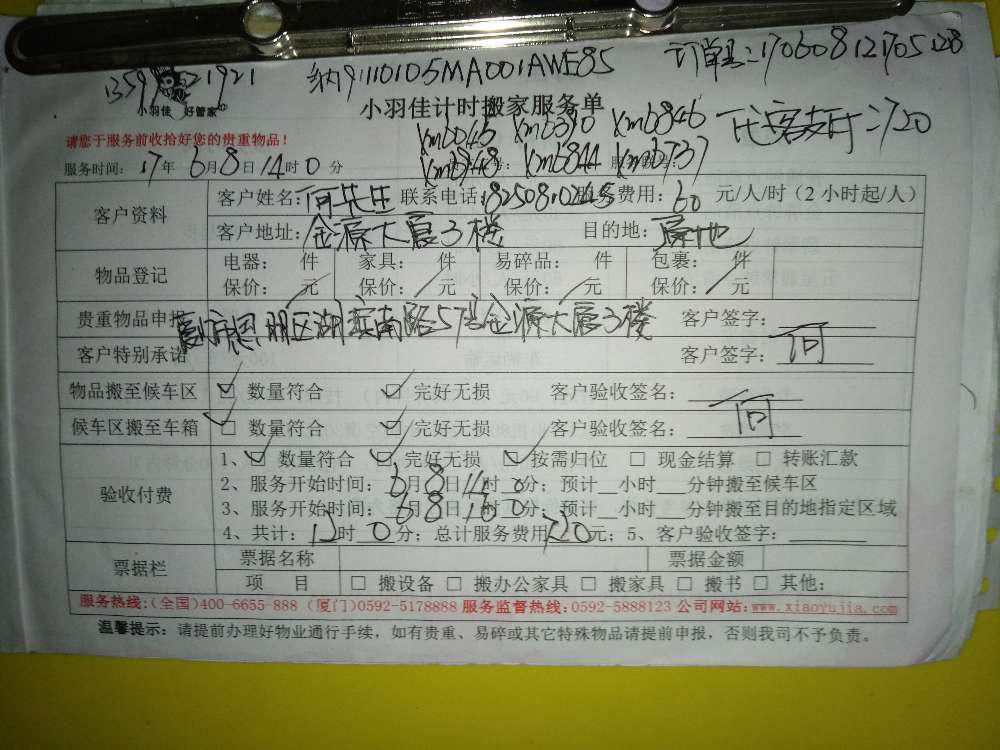 纳91110105MA001AWE85 订单号:170608127051208
小羽佳 好管家
小羽佳计时搬家服务单
代客支付:720
请您于服务前收拾好您的贵重物品!
xm6846
xm6844 xm6737
服务时间: 17年 6月8日14时0分
客户资料 客户姓名: 何先生 联系电话: 费用: 60 元/人/时(2小时起/人)
客户地址: 金源大厦3楼 目的地: 原地
物品登记 电器: 件 家具: 件 易碎品: 件 包裹: 件
保价: 元 保价: 元 保价: 元 保价: 元
贵重物品申报 客户签字:
厦门市思明区湖滨南路57号金源大厦3楼
客户特别承诺 客户签字: 何
物品搬至候车区 ☑ 数量符合 ☑ 完好无损 客户验收签名:
候车区搬至车箱 ☑ 数量符合 ☑ 完好无损 客户验收签名: 何
验收付费 1、☑ 数量符合 ☑ 完好无损 ☑ 按需归位 □ 现金结算 □ 转账汇款
2、服务开始时间: 6月8日14时0分; 预计__小时___分钟搬至候车区
3、服务开始时间: 6月8日16时0分; 预计__小时___分钟搬至目的地指定区域
4、共计: 12时0分; 总计服务费用720元; 5、客户验收签字:
票据栏 票据名称 票据金额
项 目 □ 搬设备 □ 搬办公家具 □ 搬家具 □ 搬书 □ 其他:
服务热线:(全国)400-6655-888 (厦门)0592-5178888 服务监督热线:0592-5888123 公司网站:www.xiaoyujia.com
温馨提示: 请提前办理好物业通行手续,如有贵重、易碎或其它特殊物品请提前申报,否则我司不予负责。